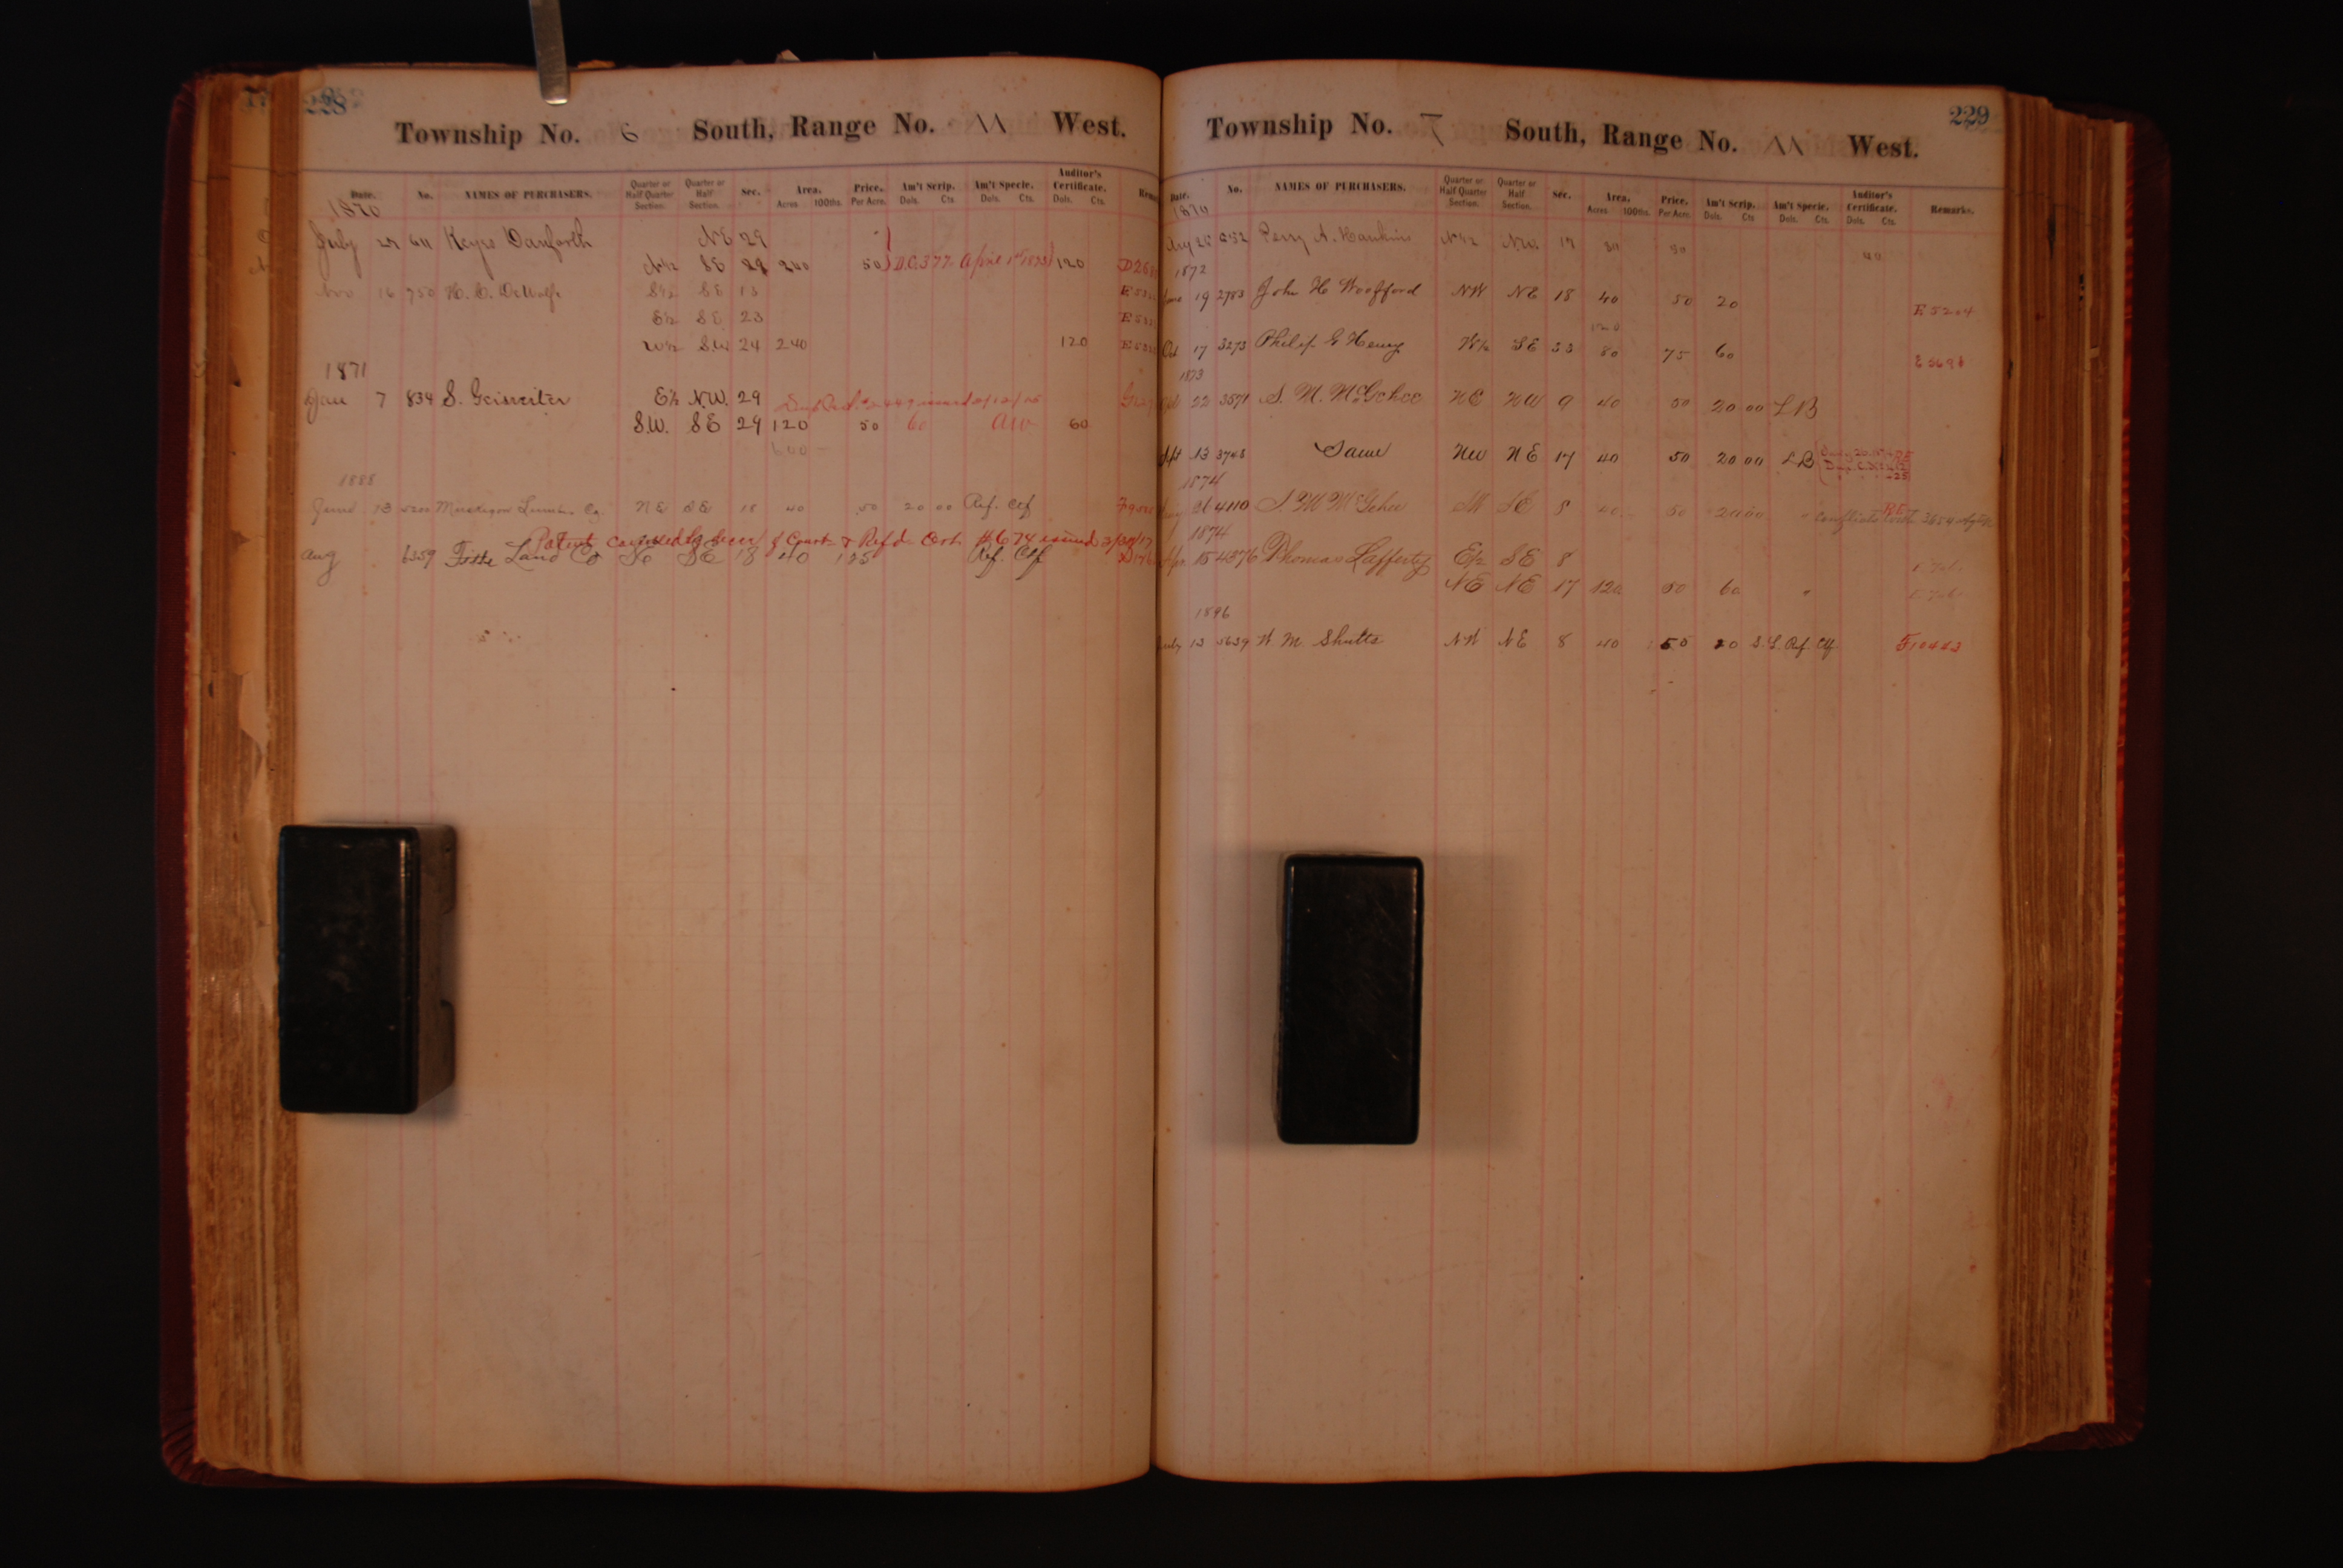 228
Township No. 6 South, Range No. 11 West.
Date. No. NAMES OF PURCHASERS. Quarter or Half Quarter Section. Quarter or Half Section. Sec. Area. Acres 100ths. Price. Per Acre. Am't Scrip. Dols. Cts. Am't Specie. Dols. Cts. Auditor's Certificate. Dols. Cts.
1870
July 611 Keyes Danforth NE 29
N½ SE 29 240 50 D.C. 377 April 1st 1873 120
Nov 16 750 H. C. DeWolfe S½ SE 13
E½ SE 23
W½ S.W 24 240 120
1871
Jan 7 834 S. Geisreiter E½ N.W. 29
S.W. SE 29 120 50 60 60
600
1888
June 13 5200 Muskegon Lumber Co. NE SE 18 40 50 20 00 Ref. Ctf
Patent canceled by decree of Court & Ref'd Cert. #674 issued
Aug 6359 Land Co NE SE 18 40 125 Ref. Ctf
229
Township No. 7 South, Range No. 11 West.
Date. No. NAMES OF PURCHASERS. Quarter or Half Quarter Section. Quarter or Half Section. Sec. Area. Acres 100ths. Price. Per Acre. Am't Scrip. Dols. Cts Am't Specie. Dols. Cts. Auditor's Certificate. Dols. Cts. Remarks.
1870
Aug 25 652 Perry A. Hawkins N½ N.W. 17 80 50 40
1872
June 19 2783 John H Woofford NW NE 18 40 50 20 E 5204
120
Oct 17 3273 Philip G Henry W½ SE 33 80 75 60
1873
22 3571 S. M. McGehee NE NW 9 40 50 20 00 LB
Sept 13 3708 Same NW NE 17 40 50 20 00 LB
1874
4110 S. M McGehee SE 8 40 50 20 00 " Conflicts with
1874
Apr. 15 4376 Thomas Lafferty E½ SE 8
NE NE 17 120 50 60 "
1896
July 13 5639 W. M Shutts NW NE 8 40 50 20 S. L. Ref. Ctf. F10443